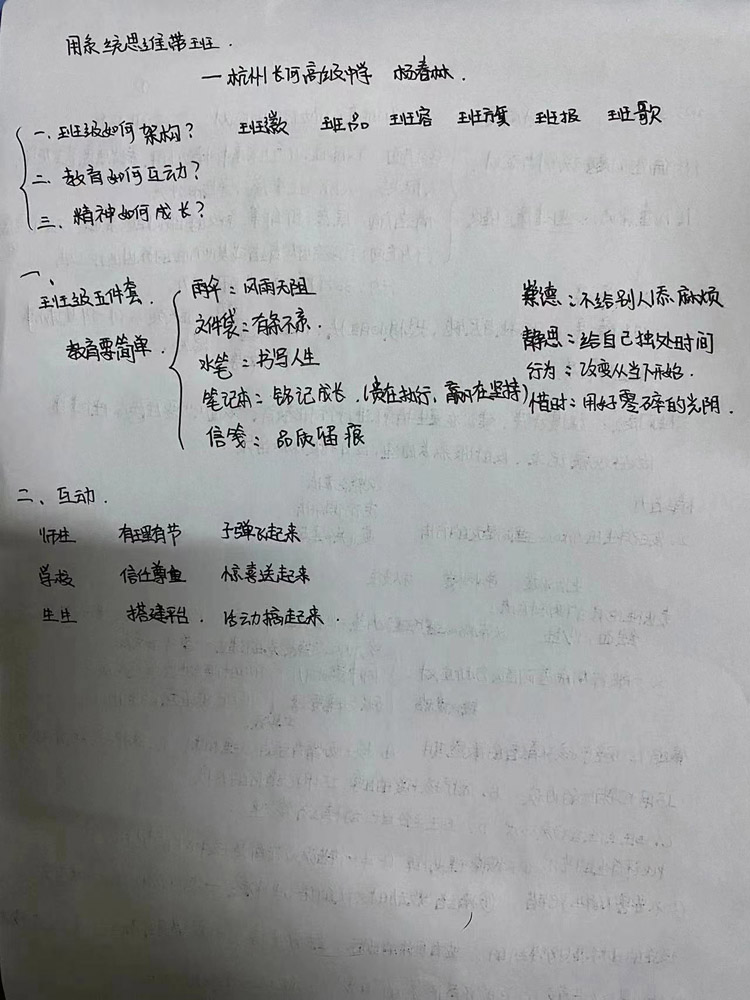 用系统思维带班.
—杭州长河高级中学 杨春林.
一.班级如何架构? 班徽 班品 班容 班旗 班报 班歌
二.教育如何互动?
三.精神如何成长?
一、
班级五件套. 教育要简单.
雨伞:风雨无阻
文件袋:有条不紊.
水笔:书写人生
笔记本:铭记成长.(贵在执行,赢在坚持)
信笺:品质留痕
崇德:不给别人添麻烦
静思:给自己独处时间
行为:改变从当下开始.
惜时:用好零碎的光阴.
二、互动.
师生 有理有节 子弹飞起来
学校 信任尊重 惊喜送起来
生生 搭建平台. 活动搞起来.